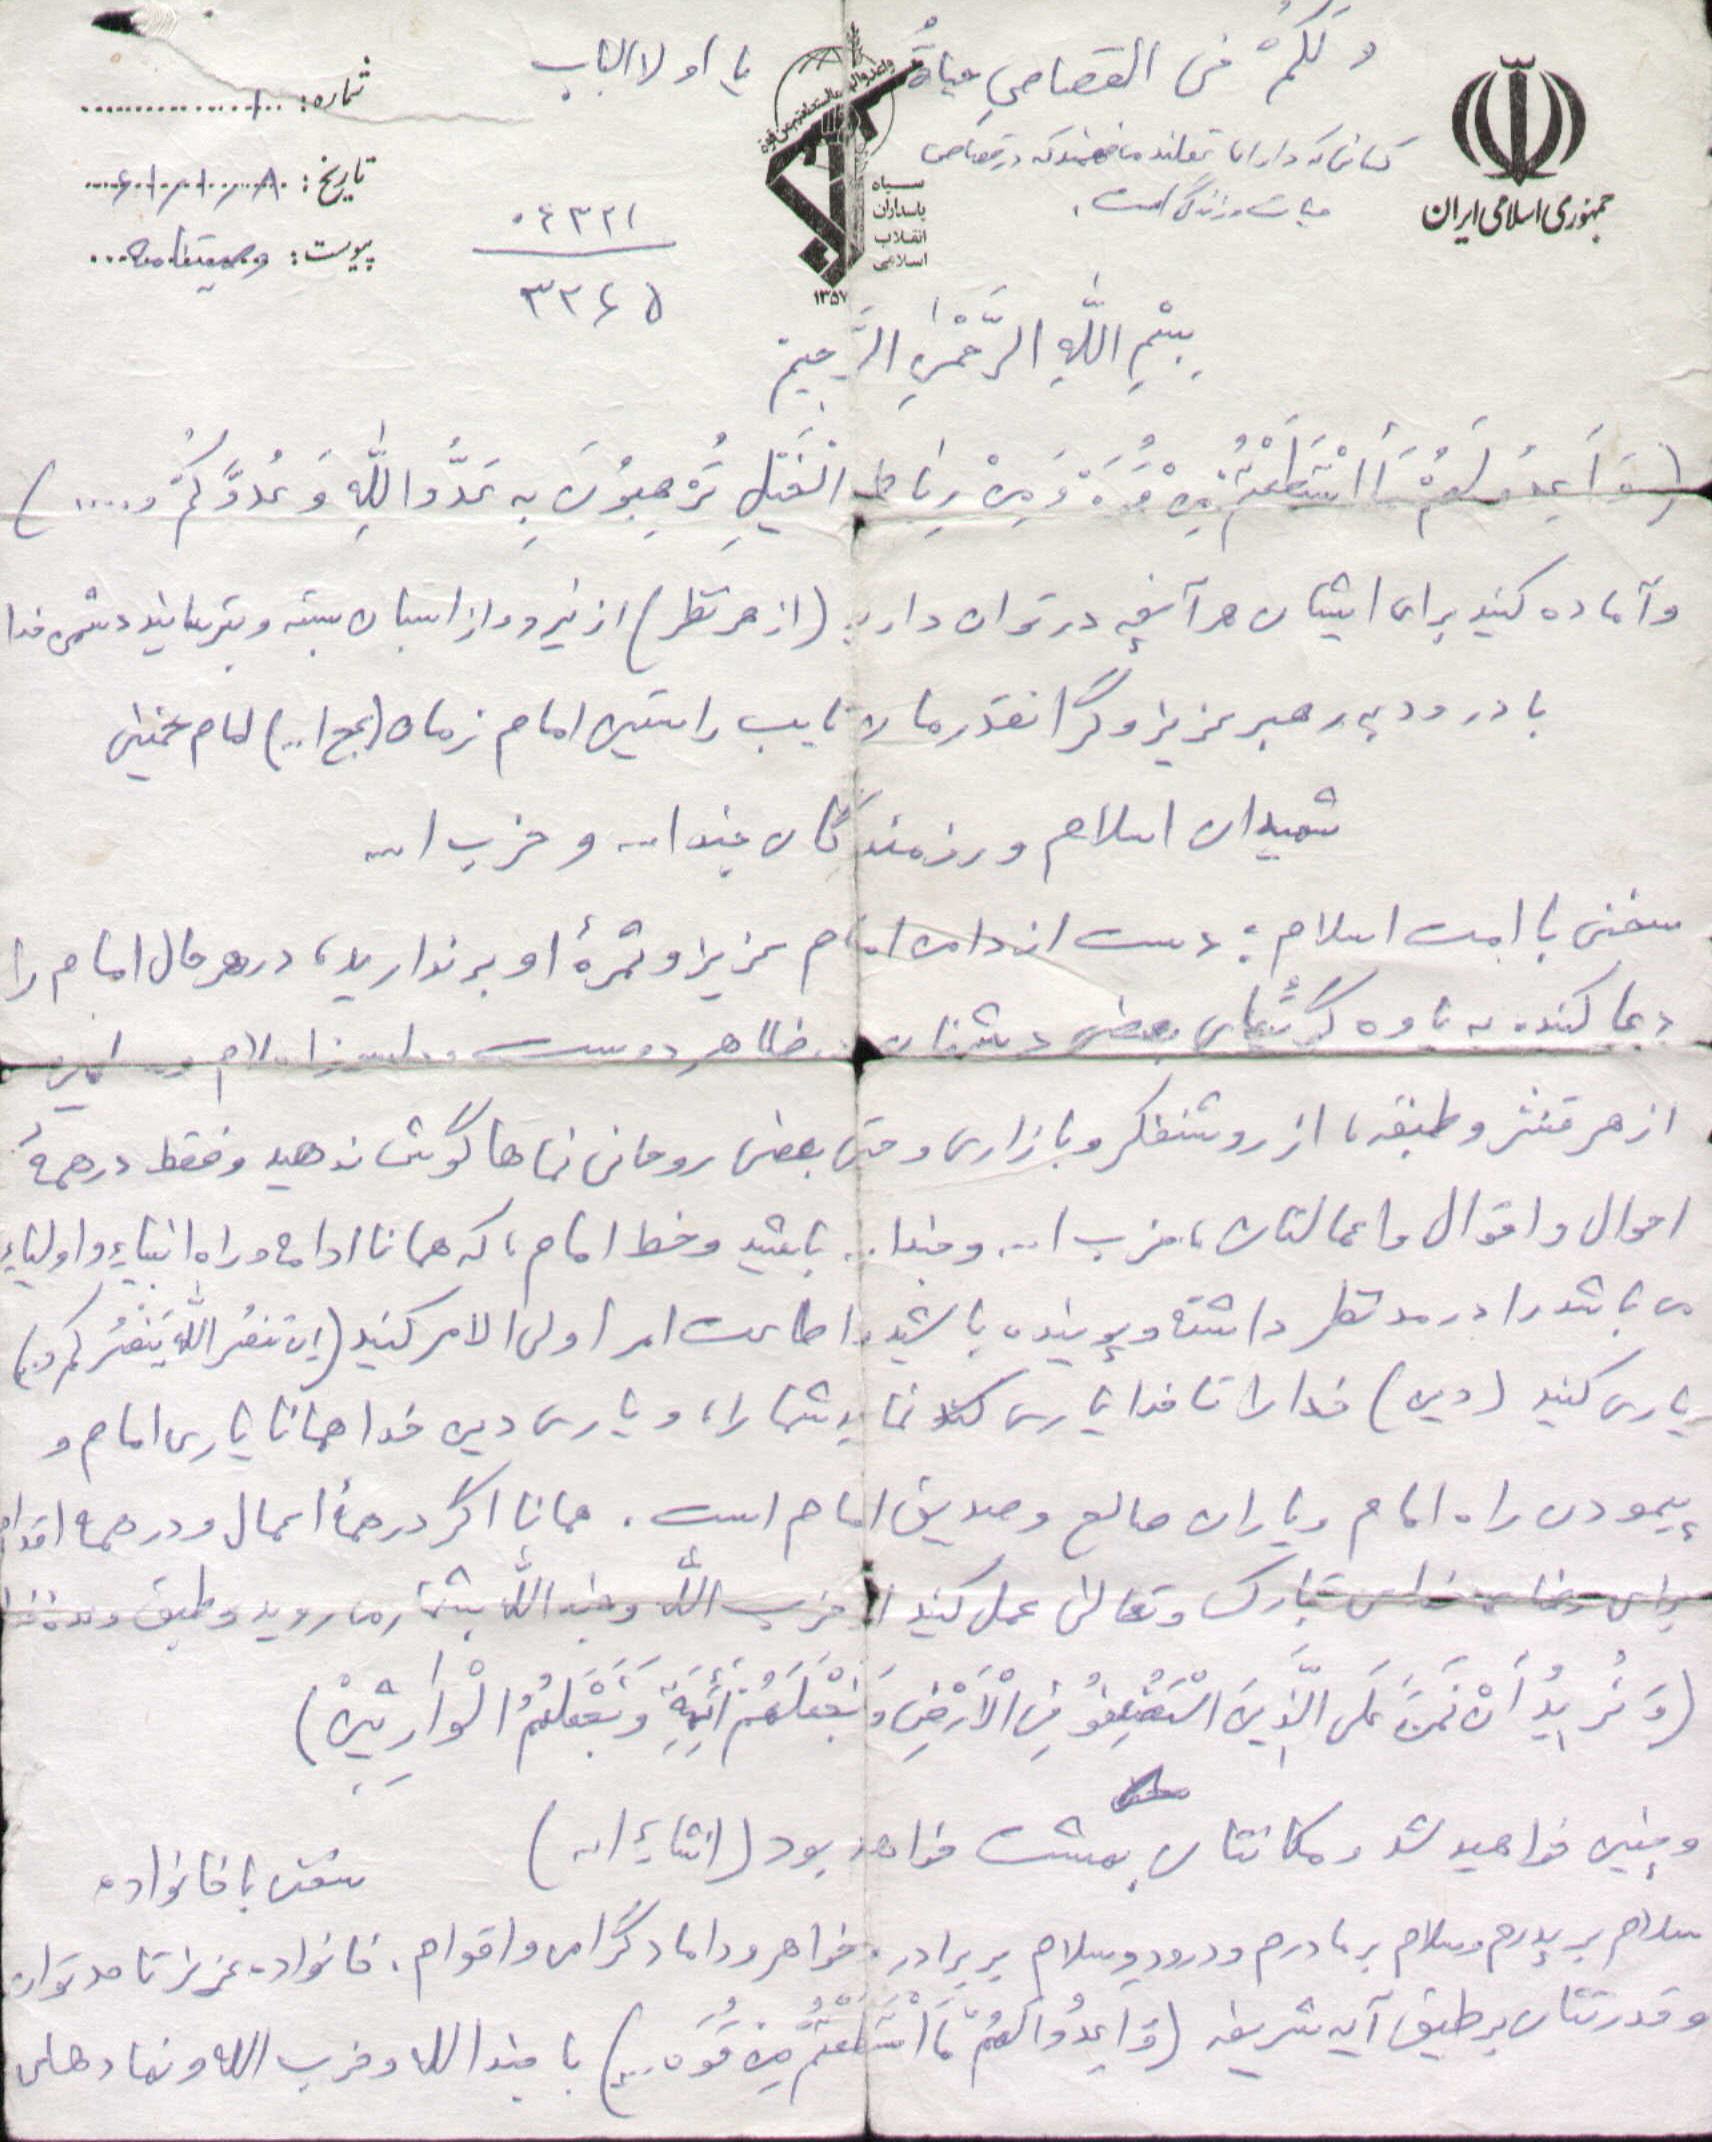 ولَكُمْ فی القصاصِ حیاةٌ یا اولاالباب
کسانی که دارای تعقلند می‌فهمند که در قصاص
حیات و زندگی است.
جمهوری اسلامی ایران
سپاه
پاسداران
انقلاب
اسلامی
۱۳۵۷
شماره: ۱
تاریخ:
پیوست: وصیتنامه
۰۴۳۲۱
۳۲۶۵
بِسْمِ اللّهِ الرَّحْمنِ الرَّحیم
(وَ اَعِدوُ لَهُمْ مَا اسْتَطَعْتُمْ مِنْ قُوَةٍ وَ مِنْ رِباطِ الْخَیْلِ تُرْهِبوُنَ بِهِ عَدُّوَاللّهِ وَ عَدُوَّکُمْ و.....)
و آماده کنید برای ایشان هر آنچه در توان دارید (از هر نظر) از نیرو و از اسبان بسته و بترسانید دشمن خدا
با درود به رهبر عزیز و گرانقدرمان نایب راستین امام زمان (عج ا..) امام خمینی
شهیدان اسلام و رزمندگان جندا... و حزب ا...
سخنی با امت اسلام: دست از دامن امام عزیز و ثمرهٔ او برندارید، در هر حال امام را
دعا کنید، به یاوه گوئیهای بعضی دشمنان بظاهر دوست و اسلام و
از هر قشر و طبقه، از روشنفکر و بازاری و حتی بعضی روحانی نماها گوش ندهید و فقط در همهٔ
احوال و اقوال و اعمالتان، حزب ا... و جندا... باشید و خط امام، که همانا ادامه راه انبیاء و اولیاء
می باشد را در مد نظر داشته و پوینده باشید و اطاعت امر اولی الامر کنید (اِن تَنصُرُ اللّهَ یَنْصُرکُم)
یاری کنید (دین) خدا را تا خدا یاری نماید شما را، و یاری دین خدا همانا یاری امام و
پیمودن راه امام و یاران صالح و صدیق امام است. همانا اگر در همهٔ اعمال و در همه اقدام
برای رضای خدای تبارک و تعالی عمل کنید از حزب اللّه و جند اللّه بشمار می روید و طبق وعده خدا
(وَ نُریدُ اَنْ نَمُنَّ عَلَی الَّذینَ اسْتُضْعِفوُ فِی الْاَرْضِ وَ نَجْعَلَهُمْ اَئِمَةً وَ نَجْعَلَهُمُ الْوارِثینْ)
و چنین خواهید شد و مکانتان بهشت خواهد بود (انشاءا...)
سخنی با خانواده
سلام بر پدرم و سلام بر مادرم و درود و سلام بر برادر و خواهر و داماد گرامی و اقوام. خانواده عزیز تا حد توان
و قدرتتان بر طبق آیه شریفه (وَ اَعِدُوا لَهُمْ مَا اسْتَطَعْتُمْ مِنْ قُوَه...) با جندالله و حزب الله و نهادهای